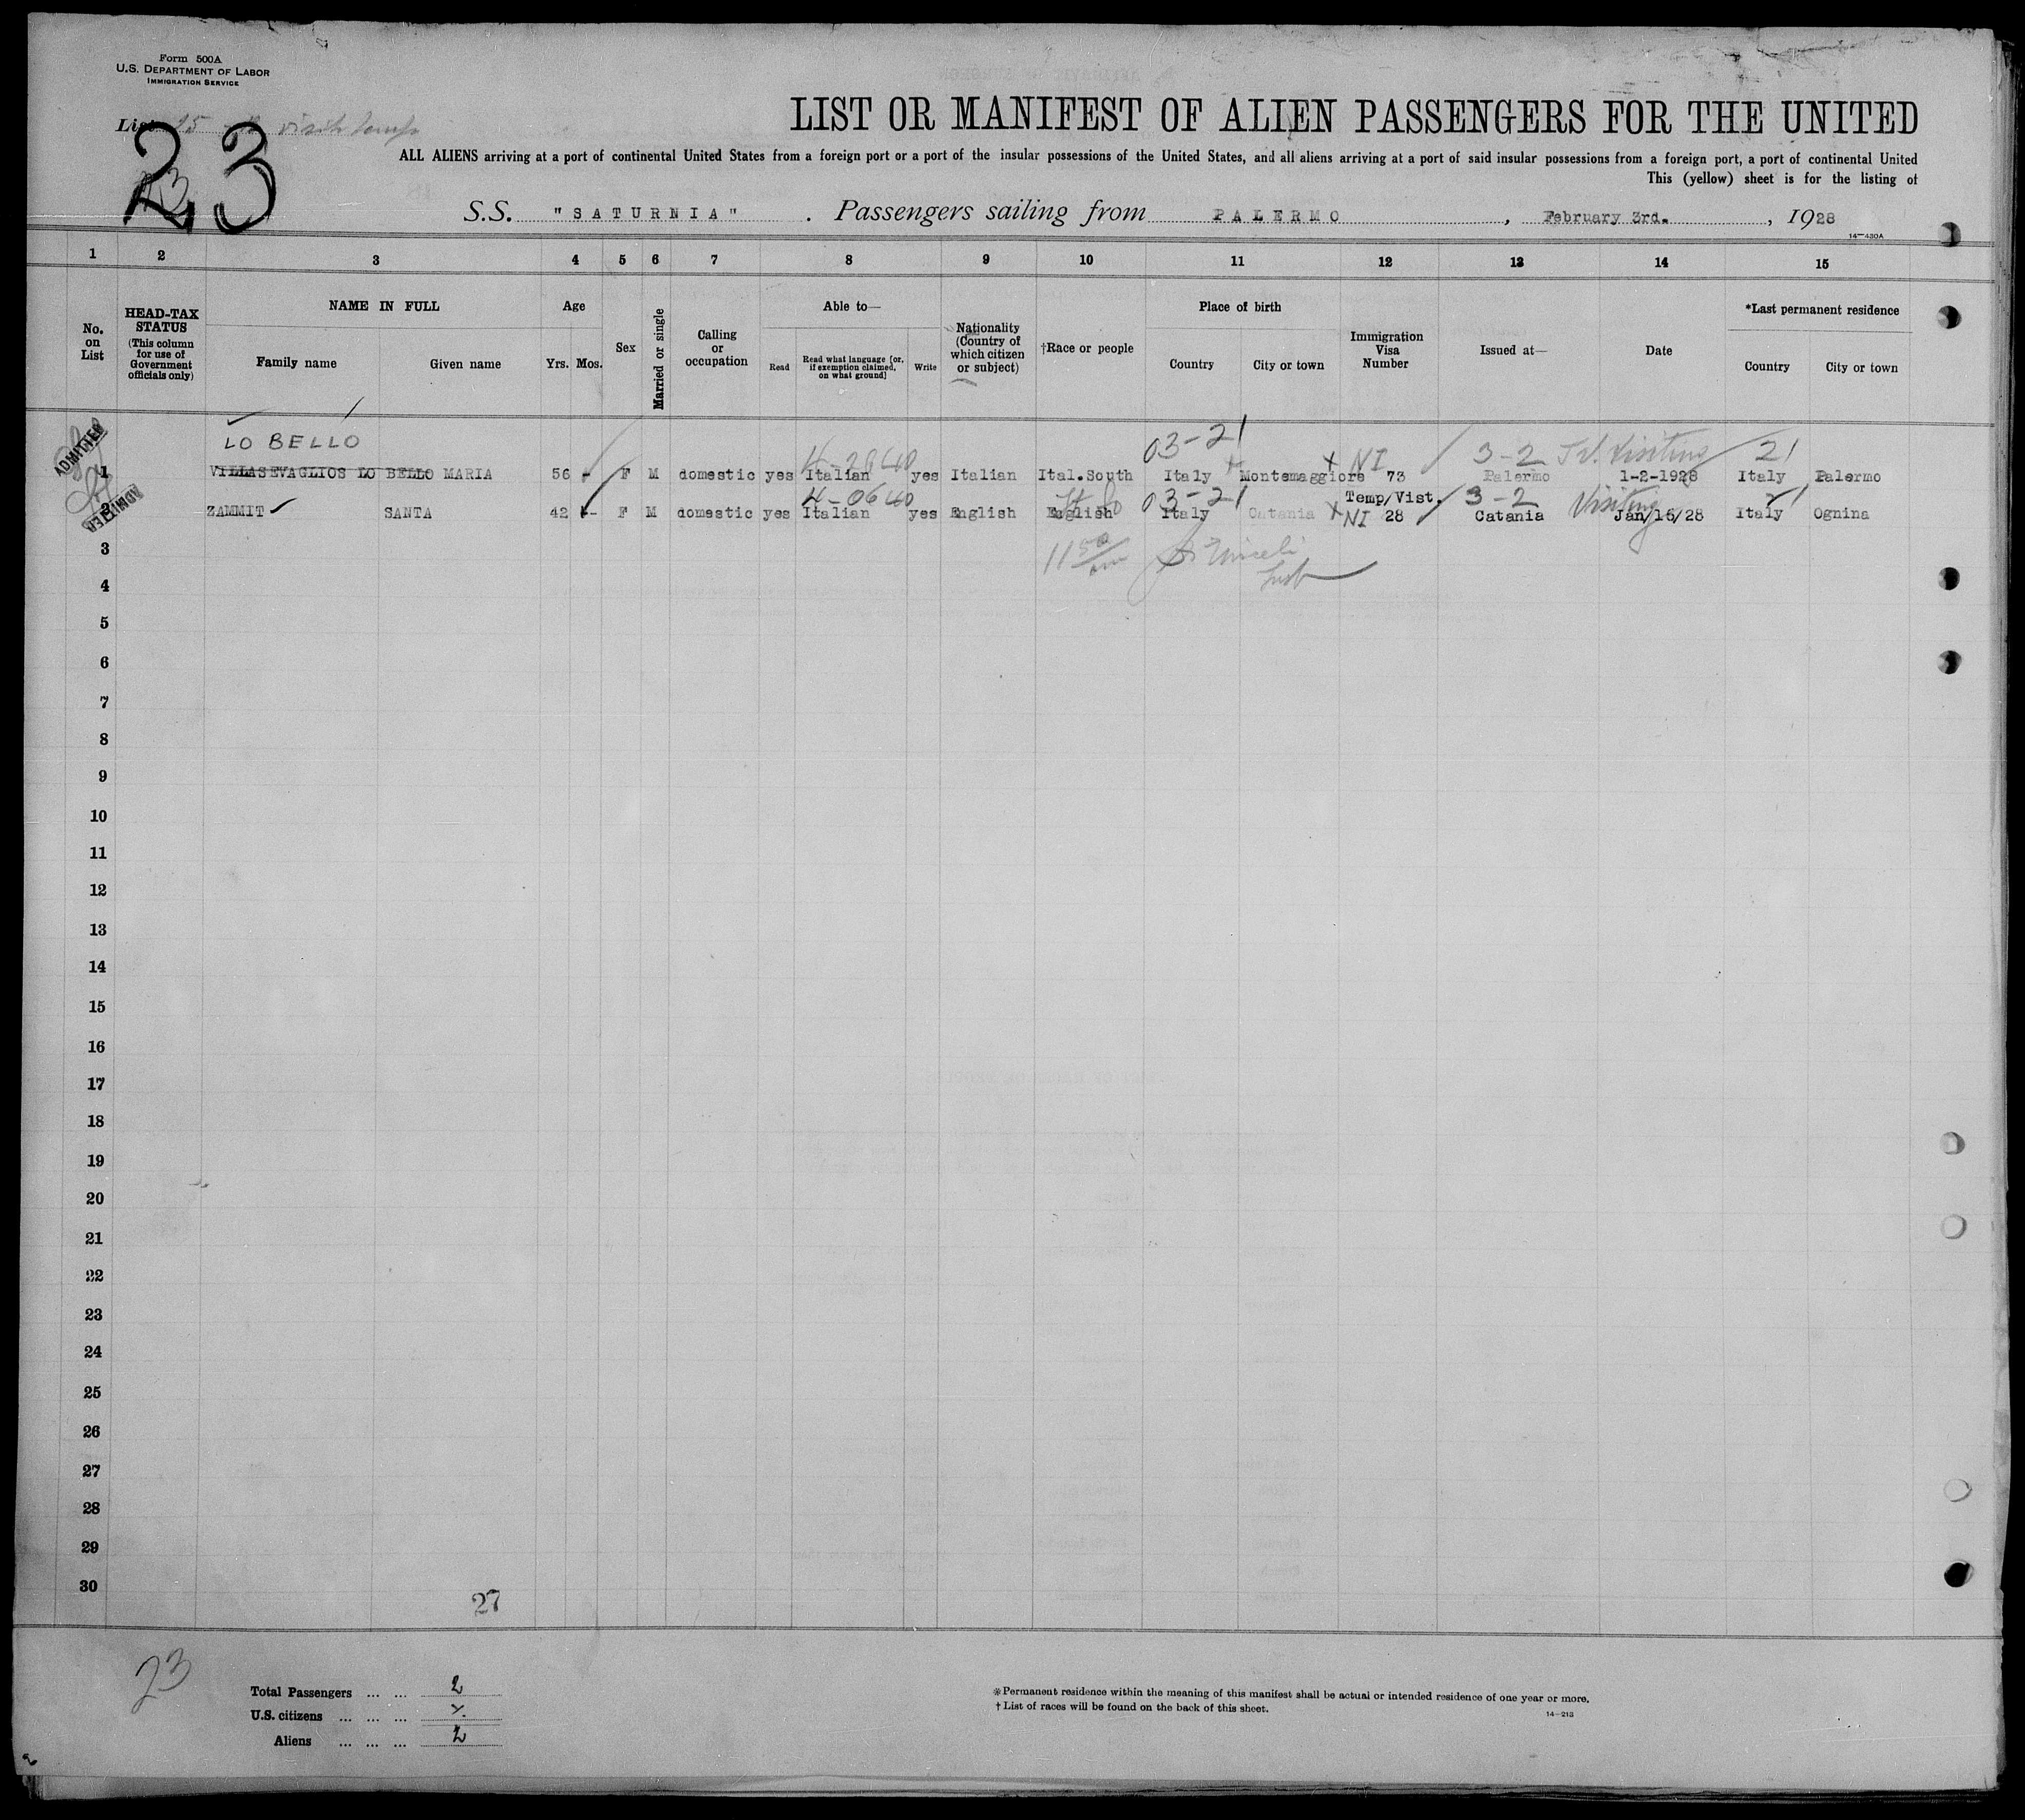 Form 500A
U.S. DEPARTMENT OF LABOR
IMMIGRATION SERVICE
List 15
23
LIST OR MANIFEST OF ALIEN PASSENGERS FOR THE UNITED
ALL ALIENS arriving at a port of continental United States from a foreign port or a port of the insular possessions of the United States, and all aliens arriving at a port of said insular possessions from a foreign port, a port of continental United
This (yellow) sheet is for the listing of
S.S. "SATURNIA" . Passengers sailing from PALERMO , February 3rd. , 1928
14—430A
1 2 3 4 5 6 7 8 9 10 11 12 13 14 15
No. on List
HEAD-TAX STATUS (This column for use of Government officials only)
NAME IN FULL
Family name Given name
Age
Yrs. Mos.
Sex
Married or single
Calling or occupation
Able to—
Read
Read what language [or, if exemption claimed, on what ground]
Write
Nationality (Country of which citizen or subject)
†Race or people
Place of birth
Country City or town
Immigration Visa Number
Issued at—
Date
*Last permanent residence
Country City or town
LO BELLO 03-21
ADMITTED 4-2840 NI 3-2 Visiting 21
1 VILLASEVAGLIOS LO BELLO MARIA 56 - F M domestic yes Italian yes Italian Ital.South Italy Montemaggiore 73 Palermo 1-2-1928 Italy Palermo
ADMITTED 4-0640 03-21 Temp/Vist. 3-2 Visiting
2 ZAMMIT SANTA 42 - F M domestic yes Italian yes English English Italy Catania NI 28 Catania Jan/16/28 Italy Ognina
3
4
5
6
7
8
9
10
11
12
13
14
15
16
17
18
19
20
21
22
23
24
25
26
27
28
29
30
27
23
Total Passengers ... ... 2
U.S. citizens ... ... ...
Aliens ... ... ... 2
*Permanent residence within the meaning of this manifest shall be actual or intended residence of one year or more.
†List of races will be found on the back of this sheet.
14—213